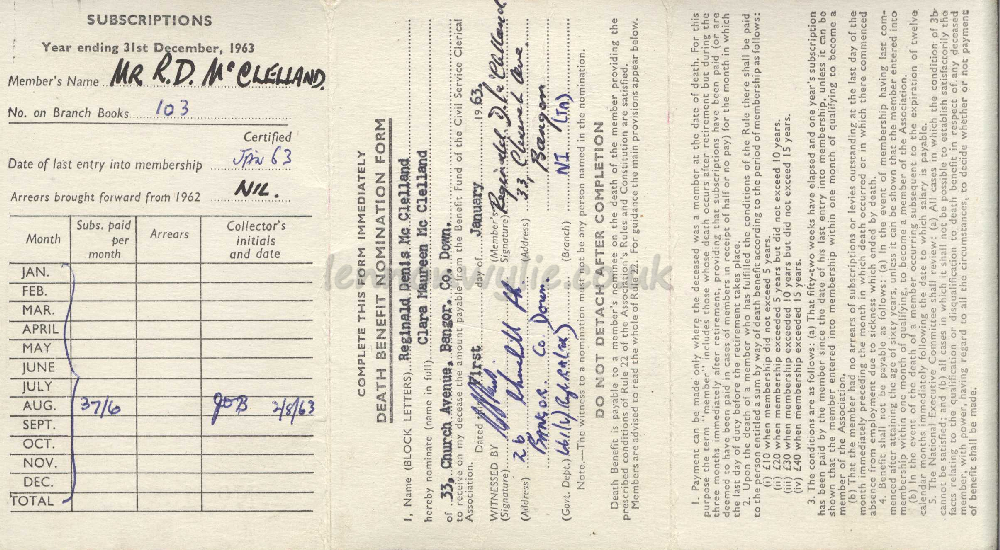 SUBSCRIPTIONS
Year ending 31st December, 1963
Member's Name MR R.D. McCLELLAND
No. on Branch Books 103
Certified
Date of last entry into membership JAN 63
Arrears brought forward from 1962 NIL.
Month Subs. paid per month Arrears Collector's initials and date
JAN.
FEB.
MAR.
APRIL
MAY
JUNE
JULY
AUG. 37/6 2/8/63
SEPT.
OCT.
NOV.
DEC.
TOTAL
COMPLETE THIS FORM IMMEDIATELY
DEATH BENEFIT NOMINATION FORM
I, Name (BLOCK LETTERS) Reginald Denis Mc Clelland
hereby nominate (name in full) Clara Maureen Mc Clelland
of 33, Church Avenue, Bagor. Co Down.
to receive on my decease the amount payable from the Benefit Fund of the Civil Service Clerical
Association.
Dated this First day of January 1963.
WITNESSED BY (Member's
(Signature) Signature) Reginald D. Mc Clelland
(Address) 26 (Address) 33, Church Ave.
Bangor Co Down Bangor
(Govt. Dept.) (Branch) NI
Note.—The witness to a nomination must not be any person named in the nomination.
DO NOT DETACH AFTER COMPLETION
Death Benefit is payable to a member's nominee on the death of the member providing the
prescribed conditions of Rule 22 of the Association's Rules and Constitution are satisfied.
Members are advised to read the whole of Rule 22. For guidance the main provisions appear below.
1. Payment can be made only where the deceased was a member at the date of death. For this
purpose the term "member" includes those whose death occurs after retirement but during the
three months immediately after retirement, providing that subscriptions have been paid (or are
deemed to have been paid in cases of members in receipt of half or no pay) for the month in which
the last day of duty before the retirement takes place.
2. Upon the death of a member who has fulfilled the conditions of the Rule there shall be paid
to the person entitled a sum by way of death benefit according to the period of membership as follows:
(i) £10 when membership did not exceed 5 years.
(ii) £20 when membership exceeded 5 years but did not exceed 10 years.
(iii) £30 when membership exceeded 10 years but did not exceed 15 years.
(iv) £40 when membership exceeded 15 years.
3. The conditions are as follows: (a) That fifty-two weeks have elapsed and one year's subscription
has been paid by the member since the date of his last entry into membership, unless it can be
shown that the member entered into membership within one month of qualifying to become a
member of the Association.
(b) That the member had no arrears of subscriptions or levies outstanding at the last day of the
month immediately preceding the month in which death occurred or in which there commenced
absence from employment due to sickness which ended by death.
4. Benefit shall not be payable as follows: (a) In the event of membership having last com-
menced after attaining the age of sixty years, unless it can be shown that the member entered into
membership within one month of qualifying, to become a member of the Association.
(b) In the event of the death of a member occurring subsequent to the expiration of twelve
calendar months immediately following the date to which salary is payable.
5. The National Executive Committee shall review: (a) All cases in which the condition of 3b
cannot be satisfied; and (b) all cases in which it shall not be possible to establish satisfactorily the
facts relating to the qualification or disqualification to death benefit in respect of any deceased
member with power, having regard to all the circumstances, to decide whether or not payment
of benefit shall be made.